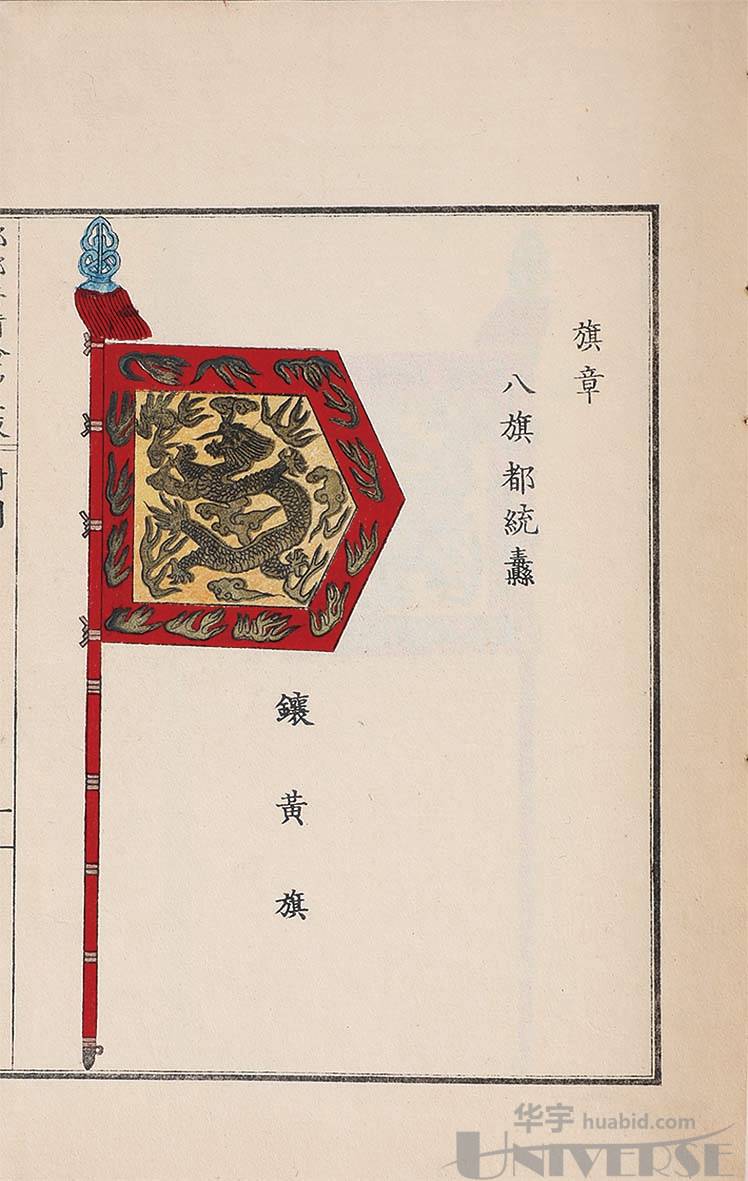 旗章
八旗都統纛
鑲黃旗
华宇 huabid.com
UNIVERSE